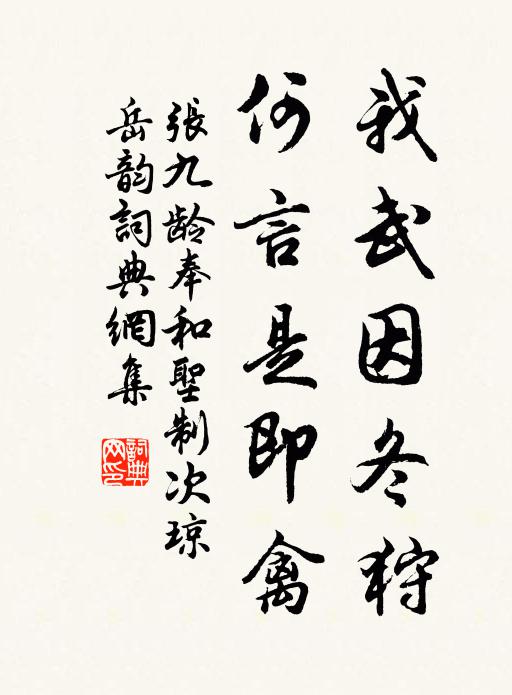 我武因冬狩
何言是即禽
張九龄奉和聖制次琼
岳韵詞典網集
詞典网印